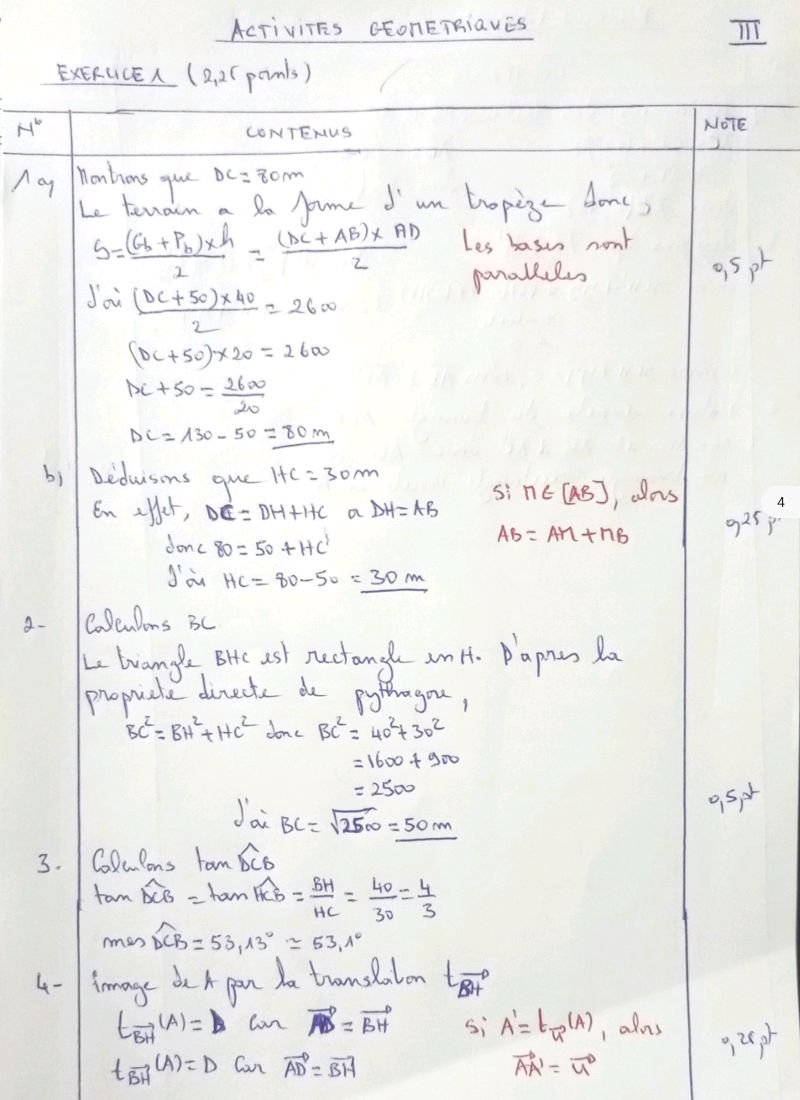 ACTIVITES GEOMETRIQUES
III
EXERCICE 1 (2,25 points)
N°
CONTENUS
NOTE
1 a) Montrons que DC = 80m
Le terrain a la forme d'un trapèze donc,
S = (Gb + Pb) × h / 2 = (DC + AB) × AD / 2
Les bases sont
paralleles
0,5 pt
J'ai (DC + 50) × 40 / 2 = 2600
(DC + 50) × 20 = 2600
DC + 50 = 2600 / 20
DC = 130 - 50 = 80 m
b) Déduisons que HC = 30m
En effet, DC = DH + HC or DH = AB
Si M ∈ [AB], alors
AB = AM + MB
4
0,25 p
donc 80 = 50 + HC
J'ai HC = 80 - 50 = 30 m
2- Calculons BC
Le triangle BHC est rectangle en H. D'apres la
propriete directe de pythagore,
BC² = BH² + HC² donc BC² = 40² + 30²
= 1600 + 900
= 2500
0,5 pt
J'ai BC = √2500 = 50 m
3. Calculons tan D̂CB
tan D̂CB = tan ĤCB = BH / HC = 40 / 30 = 4 / 3
mes D̂CB = 53,13° ≃ 53,1°
4- image de A par la translation t_BH⃗
t_BH⃗ (A) = D Car AD⃗ = BH⃗
Si A' = t_u⃗ (A), alors
AA'⃗ = u⃗
0,25 pt
t_BH⃗ (A) = D Car AD⃗ = BH⃗